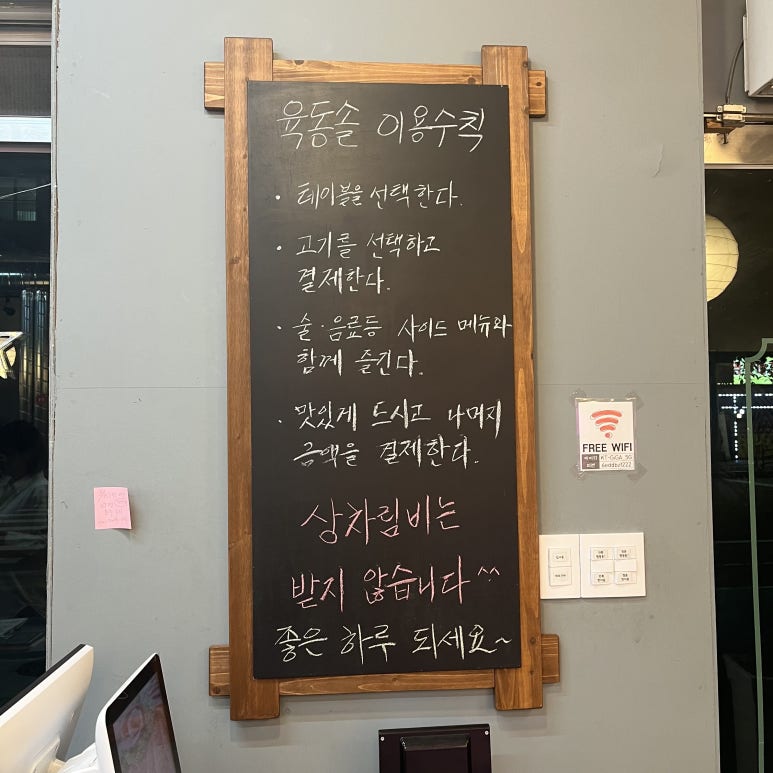 육동솔 이용수칙
· 테이블을 선택한다.
· 고기를 선택하고
결제한다.
· 술·음료등 사이드 메뉴와
함께 즐긴다.
· 맛있게 드시고 나머지
금액을 결제한다.
상차림비는
받지 않습니다^^
좋은 하루 되세요~
FREE WIFI
KT-GiGA_5G